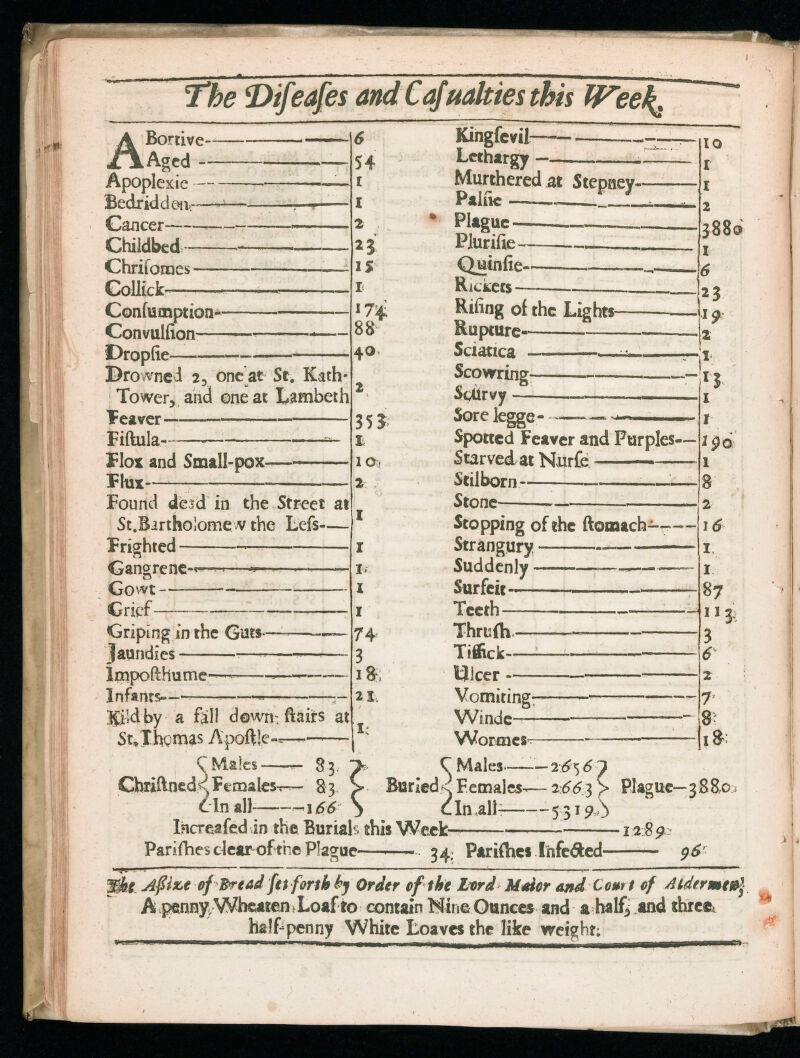 The Diſeaſes and Caſualties this Week.
ABortive 6
Aged 54
Apoplexie 1
Bedridden 1
Cancer 2
Childbed 23
Chriſomes 15
Collick 1
Conſumption 174
Convulſion 88
Dropſie 40
Drowned 2, one at St. Kath-
Tower, and one at Lambeth 2
Feaver 353
Fiſtula 1
Flox and Small-pox 10
Flux 2
Found dead in the Street at
St.Bartholomew the Leſs 1
Frighted 1
Gangrene 1
Gowt 1
Grief 1
Griping in the Guts 74
Jaundies 3
Impoſthume 18
Infants 21
Kild by a fall down ſtairs at
St. Thomas Apoſtle 1
Kingſevil 10
Lethargy 1
Murthered at Stepney 1
Palſie 2
Plague 3880
Pluriſie 1
Quinſie 6
Rickets 23
Riſing of the Lights 19
Rupture 2
Sciatica 1
Scowring 13
Scurvy 1
Sore legge 1
Spotted Feaver and Purples 190
Starved at Nurſe 1
Stilborn 8
Stone 2
Stopping of the ſtomach 16
Strangury 1
Suddenly 1
Surfeit 87
Teeth 113
Thruſh 3
Tiſſick 6
Ulcer 2
Vomiting 7
Winde 8
Wormes 18
Males 83 Males 2656
Chriſtned Females 83 Buried Females 2663 Plague 3880
In all 166 In all 5319
Increaſed in the Burials this Week 1289
Pariſhes clear of the Plague 34 Pariſhes Infected 96
The Aſſize of Bread ſet forth by Order of the Lord Maior and Court of Aldermen,
A penny Wheaten Loaf to contain Nine Ounces and a half, and three
half-penny White Loaves the like weight.